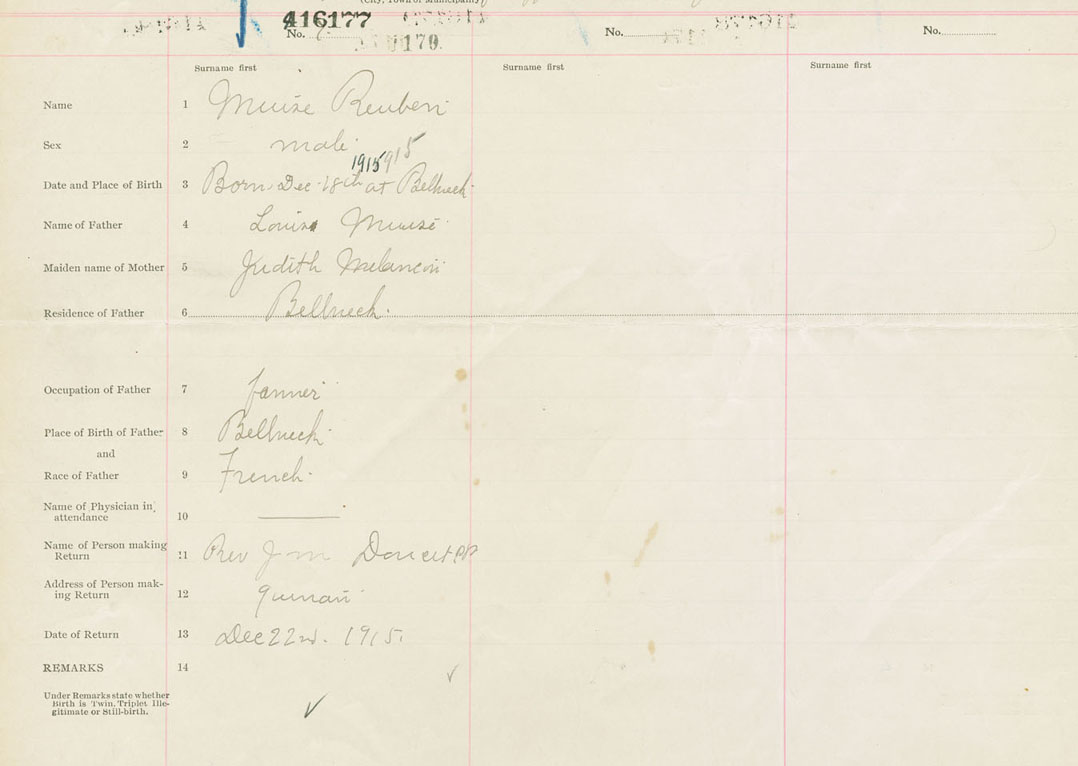 (City, Town or Municipality)
416177
No. No. No.
179
Surname first Surname first Surname first
Name 1 Muise Reuben
Sex 2 male
1915 915
Date and Place of Birth 3 Born Dec 18th at Bellneck
Name of Father 4 Louis Muise
Maiden name of Mother 5 Judith Melancon
Residence of Father 6 Bellneck.
Occupation of Father 7 farmer
Place of Birth of Father 8 Bellneck
and
Race of Father 9 French.
Name of Physician in
attendance 10
Name of Person making
Return 11 Rev J m Doucet PP
Address of Person mak-
ing Return 12 Quinan
Date of Return 13 Dec 22nd. 1915.
REMARKS 14
Under Remarks state whether
Birth is Twin, Triplet Ille-
gitimate or Still-birth.